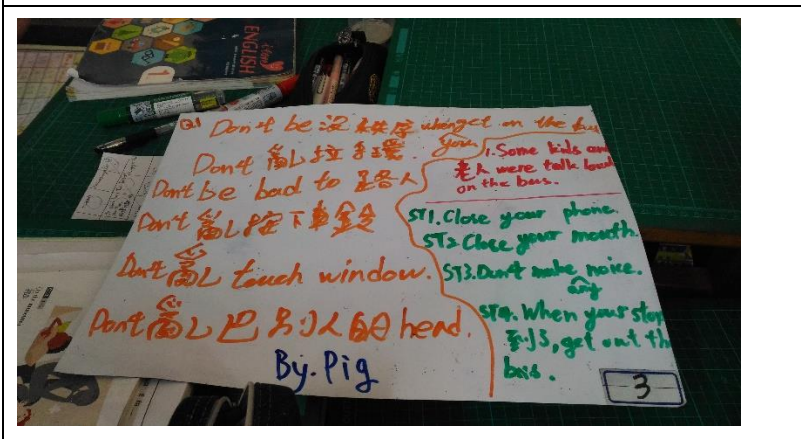 ENGLISH
1
Q1 Don't be 沒秩序 when get on the bus
you
Don't 亂拉手環
Don't be bad to 路人
Don't 亂按下車鈴
Don't 亂 touch window.
Don't 亂巴別人的 head.
By. Pig
1. Some kids and
老人 were talk loud
on the bus.
ST1. Close your phone.
ST2 Close your mouth.
ST3. Don't make noice.
any
ST4. When your stop
到了, get out th
bus.
3